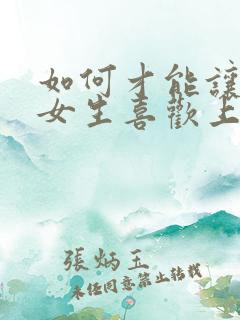 如何才能讓
女生喜歡上
張炳玉
未経同意禁止转载